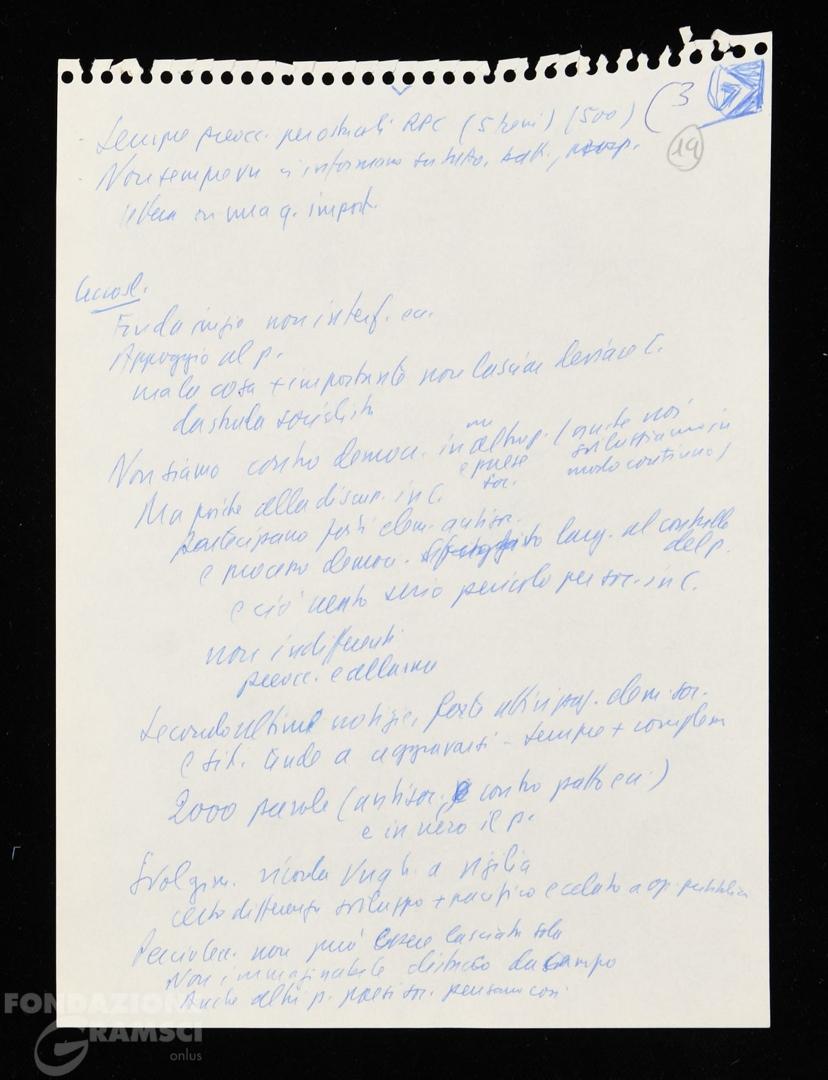 - Sempre preocc. per ostacoli RPC (5 treni) (500) (3
19
- Non sempre vn si informano subito, tratt.,
su una q. import.
Cecosl.
Fin da inizio non interf. ecc.
Appoggio al p.
ma la cosa + importante non lasciar deviare C.
da strada socialista
Non siamo contro democr. in altro p. (anche noi
e paese sviluppiamo in
soc. modo continuo)
Ma poiché alla discuss. in C.
partecipano forti elem. antisoc.
e processo democr. largo al controllo
del p.
e ciò serio pericolo per soc. in C.
non indifferenti
preocc. e allarme
Secondo ultime notizie, forte elem. soc.
e sit. tende a aggravarsi - sempre + complessa
2000 parole (antisoc., e contro patto ecc.)
e in vero il p.
Svolgim. ricorda Ungh. a vigilia
certo differenza sviluppo + pacifico e celato a op. pubblica
Perciò Cec. non può essere lasciata sola
Non immaginabile distacco da campo
Anche altri p. paesi soc. pensano così.
FONDAZIONE
GRAMSCI
onlus